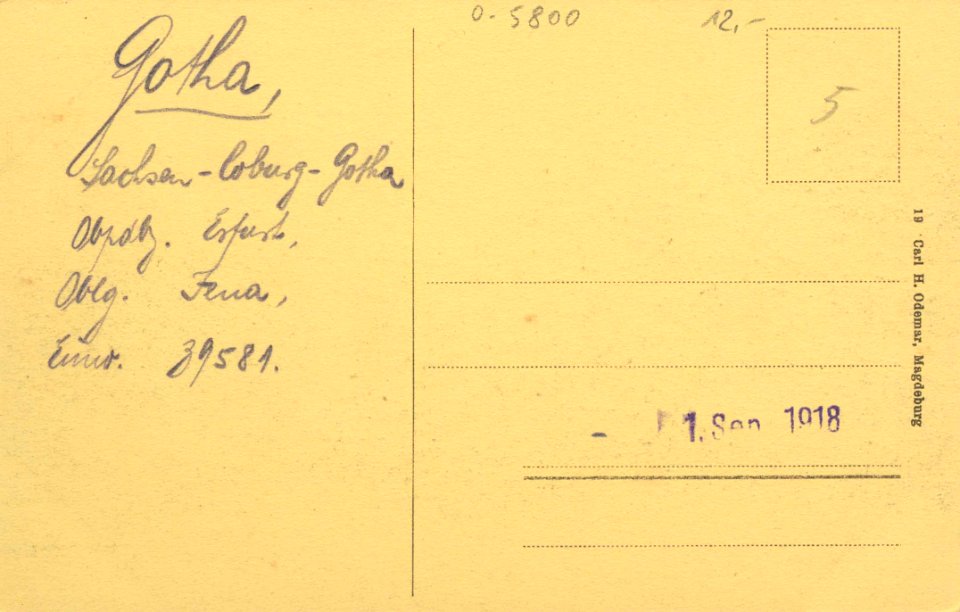 0-5800
12,-
5
Gotha,
Sachsen-Coburg-Gotha
Obpdbz. Erfurt,
Oblg. Jena,
Einw. 39581.
19 Carl H. Odemar, Magdeburg
1. Sep. 1918